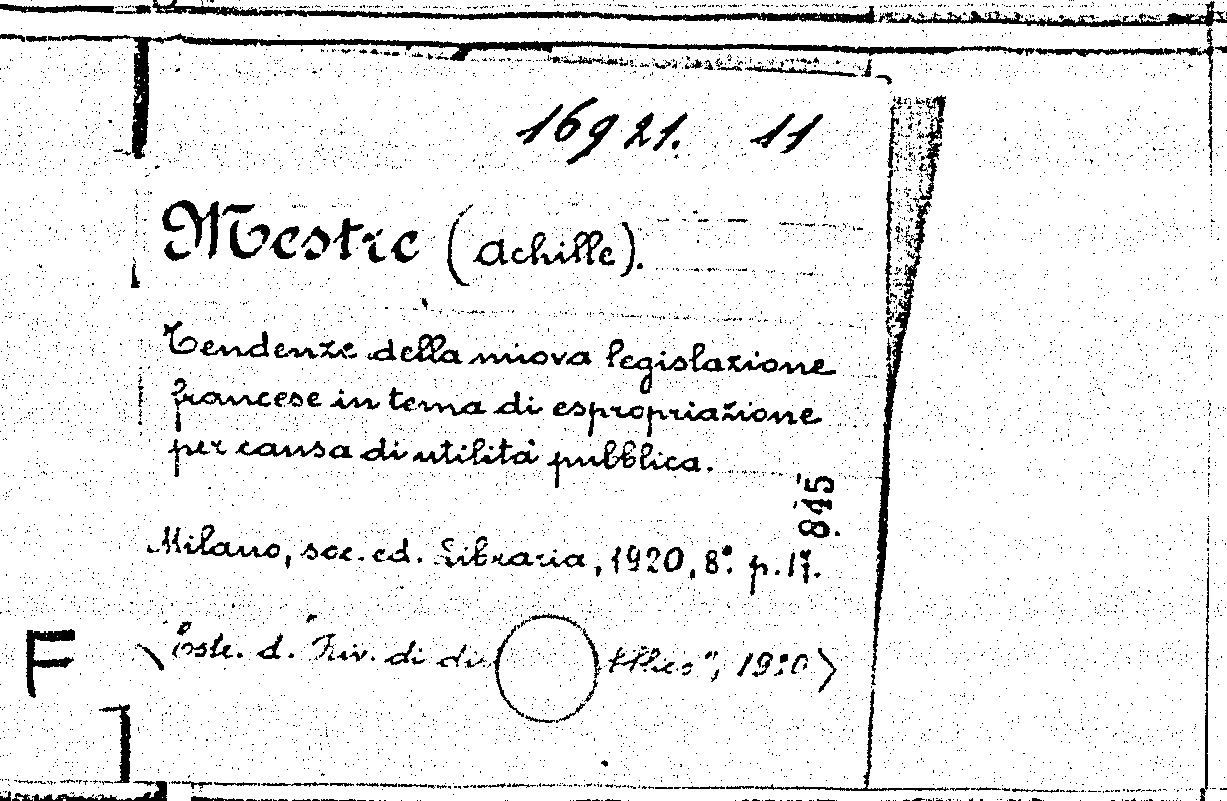 16921. 11
Mestre (Achille).
Tendenze della nuova legislazione
francese in tema di espropriazione
per causa di utilità pubblica.
845
Milano, soc. ed. Libraria, 1920, 8°. p. 17.
F
Estr. d. "Riv. di di bblico", 1920